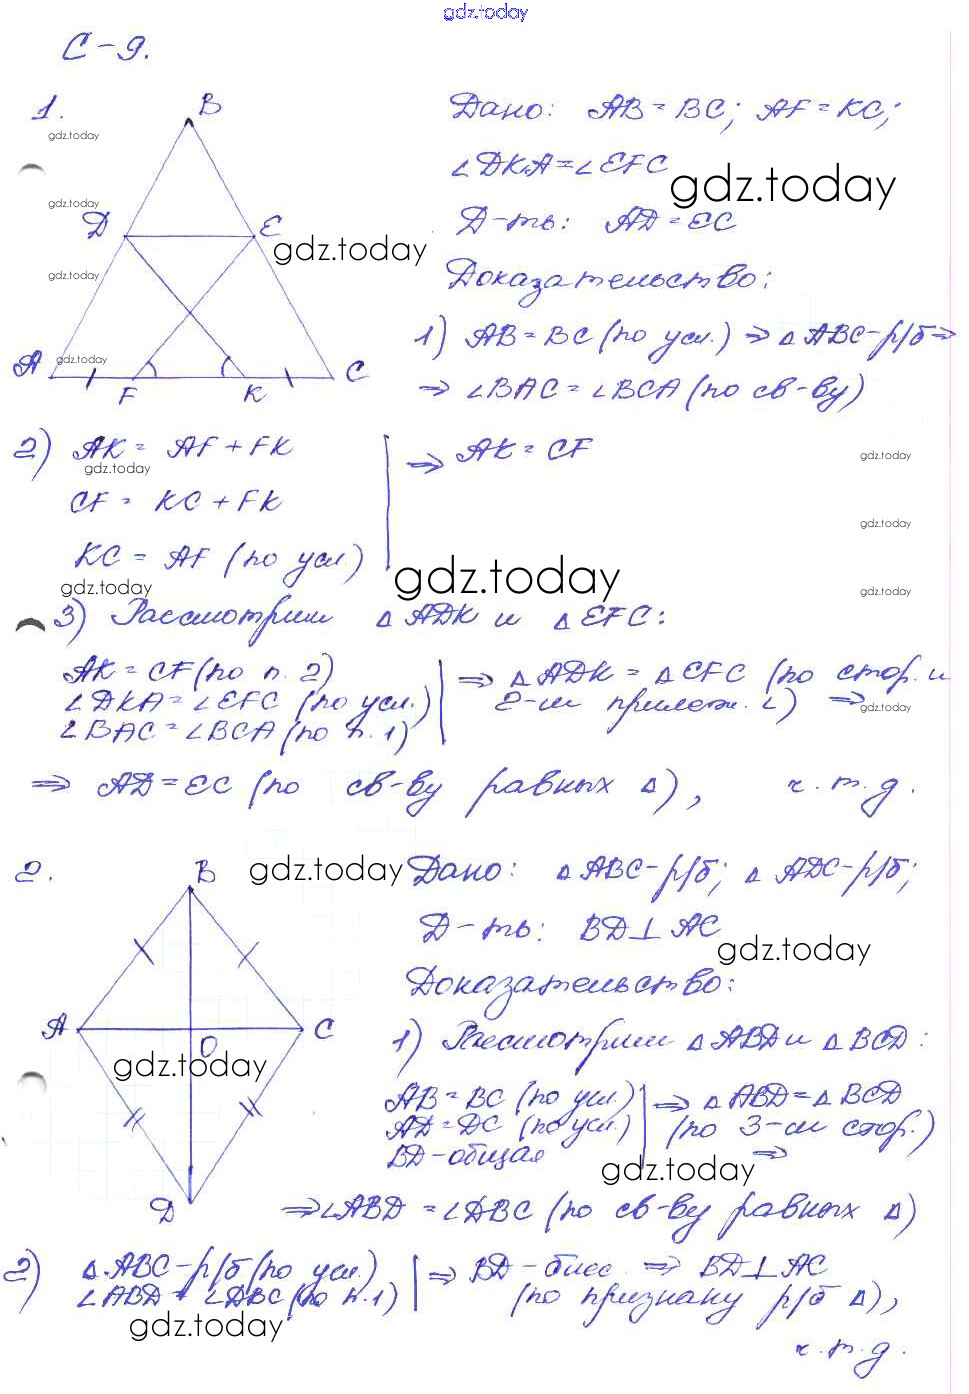 gdz.today
С-9.
1.
B
Дано: AB = BC; AF = KC;
gdz.today
∠DKA = ∠EFC
gdz.today
gdz.today
D
E
Д-ть: AD = EC
gdz.today
gdz.today
Доказательство:
1) AB = BC (по усл.) ⇒ △ABC-р/б ⇒
gdz.today
A
F
K
C
⇒ ∠BAC = ∠BCA (по св-ву)
2) AK = AF + FK
⇒ AK = CF
gdz.today
gdz.today
CF = KC + FK
gdz.today
KC = AF (по усл)
gdz.today
gdz.today
gdz.today
3) Рассмотрим △ADK и △EFC:
AK = CF (по п. 2)
∠DKA = ∠EFC (по усл.)
∠BAC = ∠BCA (по п. 1)
⇒ △ADK = △CFC (по стор. и
2-м прилеж. ∠) ⇒
gdz.today
⇒ AD = EC (по св-ву равных △), ч.т.д.
2.
B
gdz.today
Дано: △ABC-р/б; △ADC-р/б;
Д-ть: BD ⊥ AC
gdz.today
Доказательство:
A
O
C
gdz.today
D
1) Рассмотрим △ABD и △BCD:
AB = BC (по усл)
AD = DC (по усл.)
BD-общая
⇒ △ABD = △BCD
(по 3-м стор.)
⇒
gdz.today
⇒ ∠ABD = ∠DBC (по св-ву равных △)
2) △ABC-р/б (по усл.)
∠ABD = ∠DBC (по п. 1)
⇒ BD-бисс. ⇒ BD ⊥ AC
(по признаку р/б △),
gdz.today
ч.т.д.